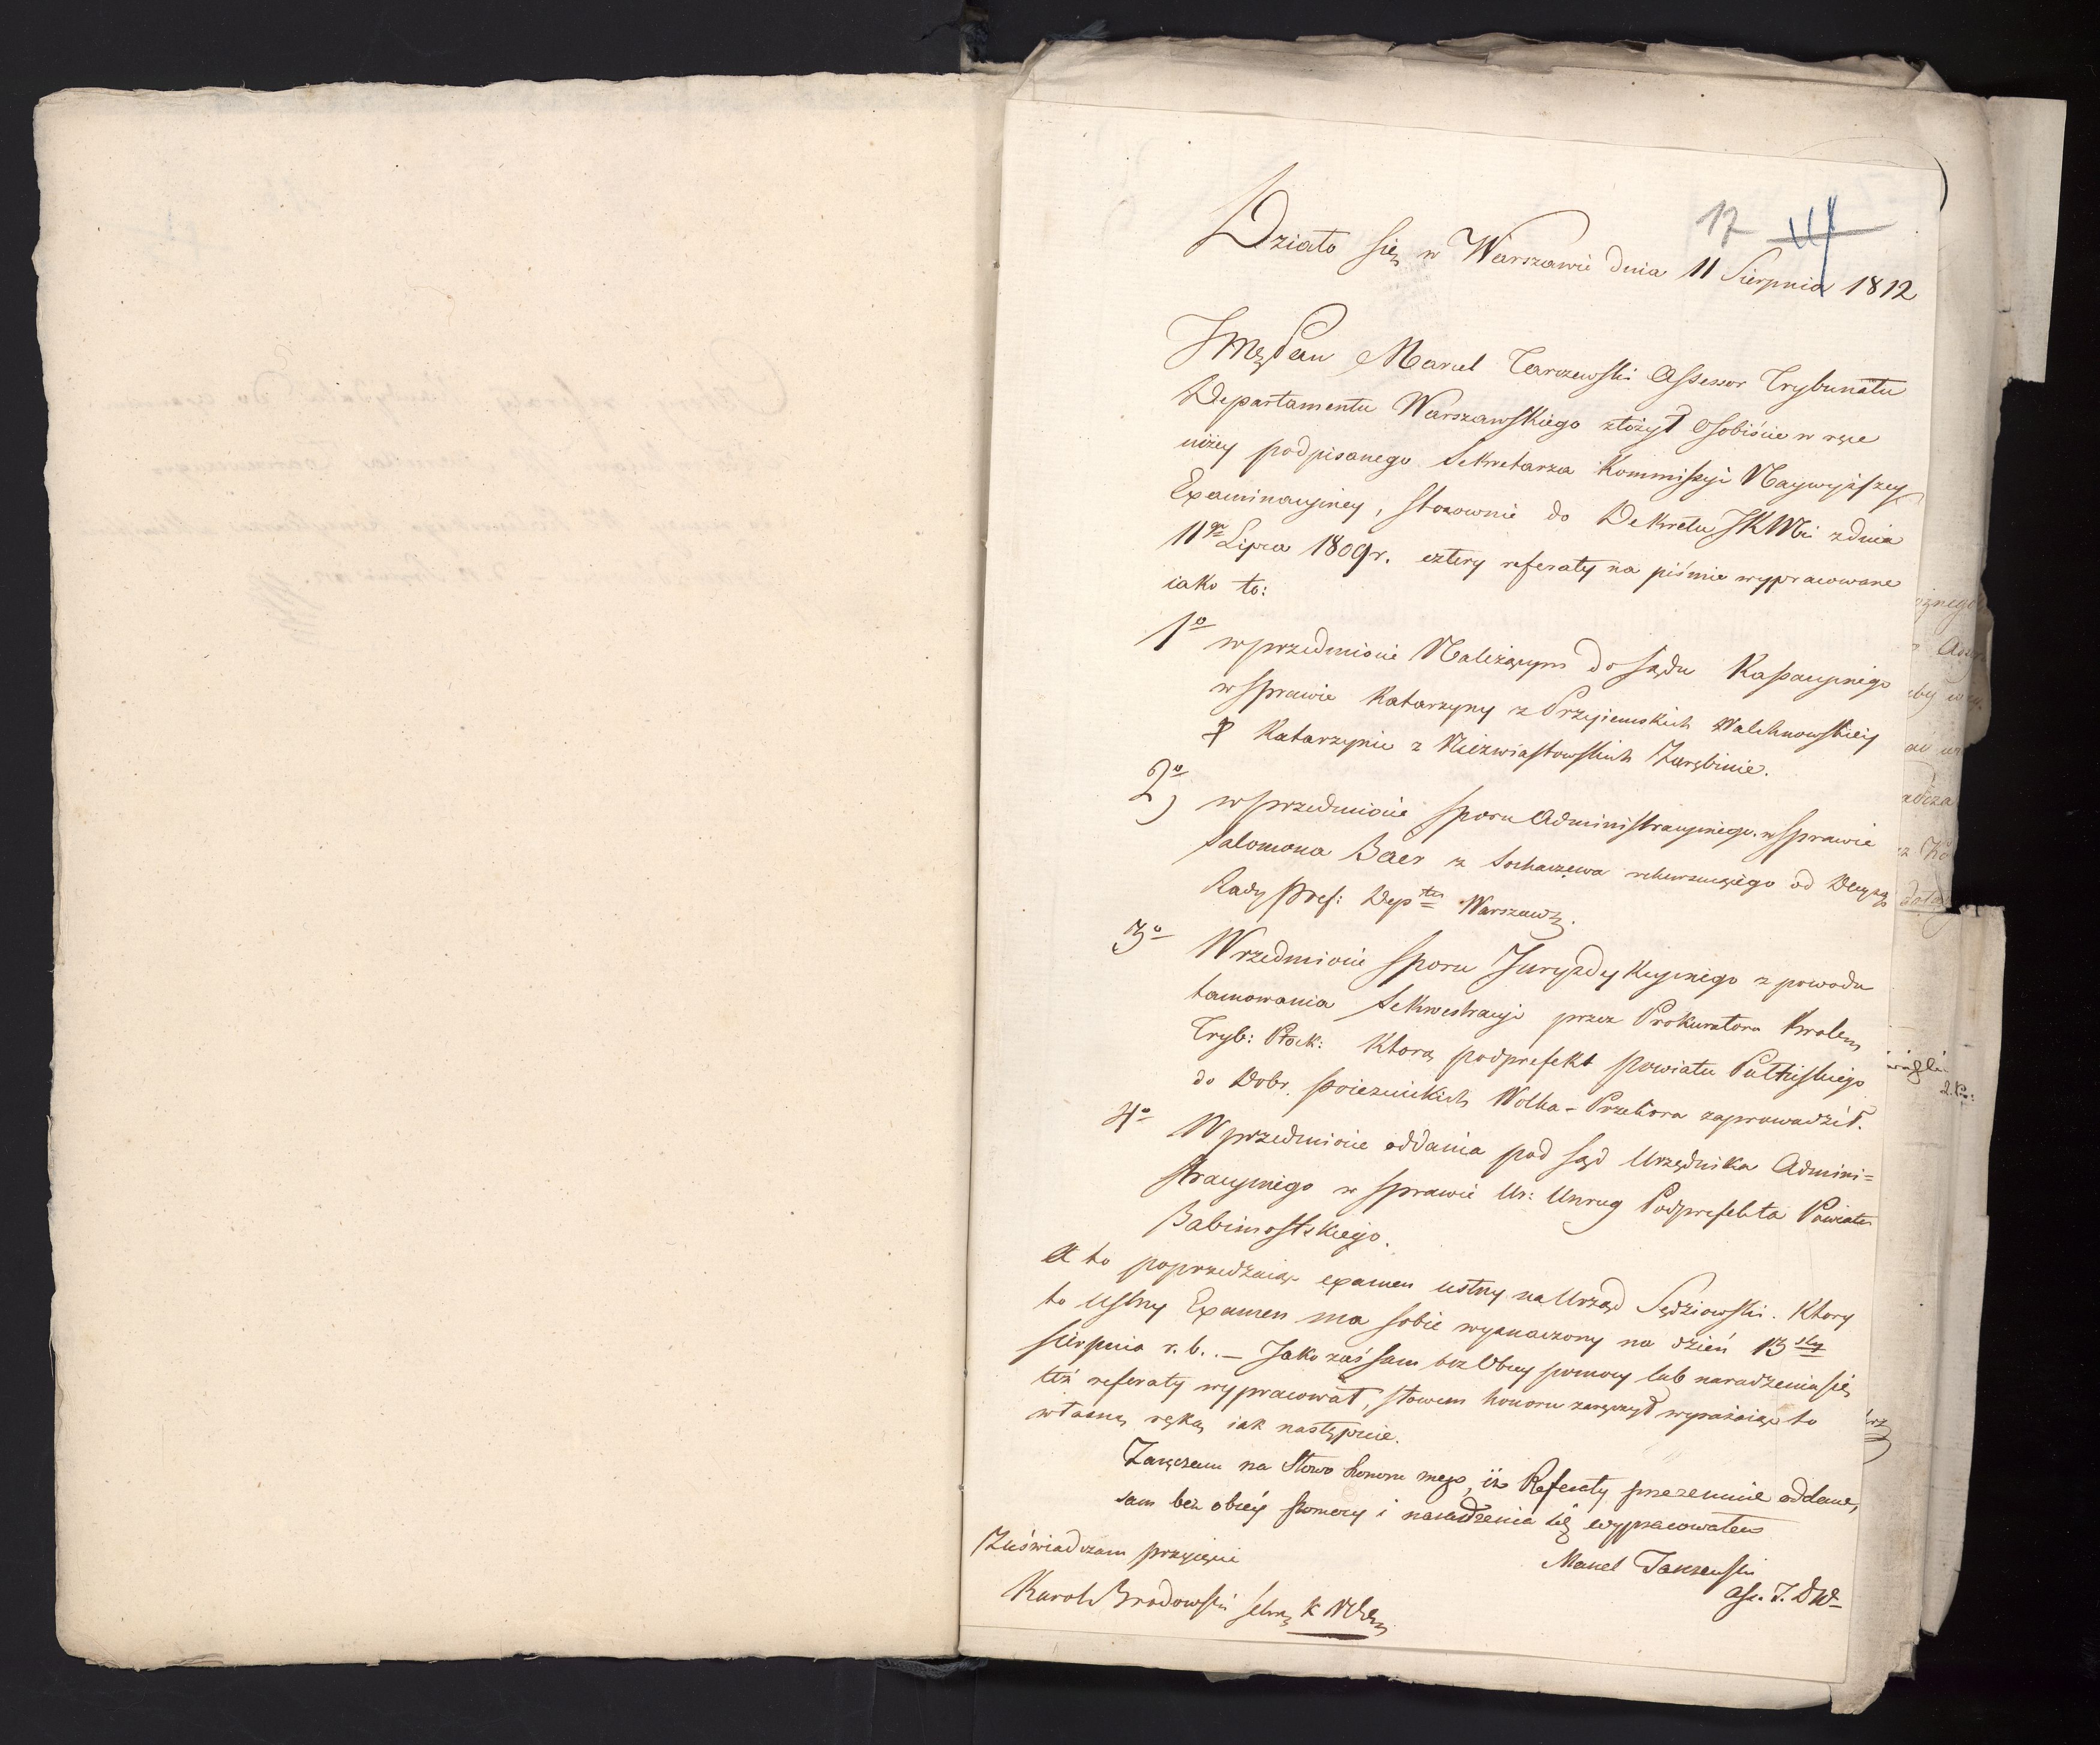 17
Działo się w Warszawie dnia 11 Sierpnia 1812
JMć Pan Marcel Tarczewski Assessor Trybunału
Departamentu Warszawskiego złożył osobiście w ręce
niżey podpisanego Sekretarza Kommissyi Naywyższey
Examinacyiney, stosownie do Dekretu JKMci z dnia
11go Lipca 1809 r. cztery referaty na piśmie wypracowane
iako to:
1o w przedmiocie Należącym do Sądu Kassacyinego
w sprawie Katarzyny z Przyiemskich Walchnowskiey
Katarzynie z Nieżwiastowskich Zarębinie.
2o w przedmiocie sporu Administracyinego w sprawie
Salomona Baer z Sochaczewa rekursuiącego od Decyzyi
Rady Pref: Deptu Warszaw.
3o W rzedmiocie sporu Juryzdykcyinego z powodu
tamowania Sekwestracyi przez Prokuratora Krolew
Tryb: Płock: Którą podprefekt powiatu Pułtuskiego
do Dobr poiezuickich Wolka-Przekora zaprowadził.
4o W przedmiocie oddania pod sąd Urzędnika Admini=
stracyinego w sprawie Ur: Unrug Podprefekta Powiatu
Babimostskiego.
A to poprzedzaiąc examen ustny na Urząd Sędziowski. Ktory
to ustny Examen ma sobie wyznaczony na dzień 13sty
sierpnia r. b. – Jako zaś sam bez obcey pomocy lub naradzenia się
też referaty wypracował, słowem honoru zaręczył wyrażaiąc to
własną ręką iak następuie.
Zaręczam na Słowo honoru mego, iż Referaty przezemnie oddane,
sam bez obcey pomocy i naradzenia się wypracowałem
Marcel Tarczewski
Ass. T. D W
Zaświadczam przyięcie
Karol Brodowski Sekr. K N Ex